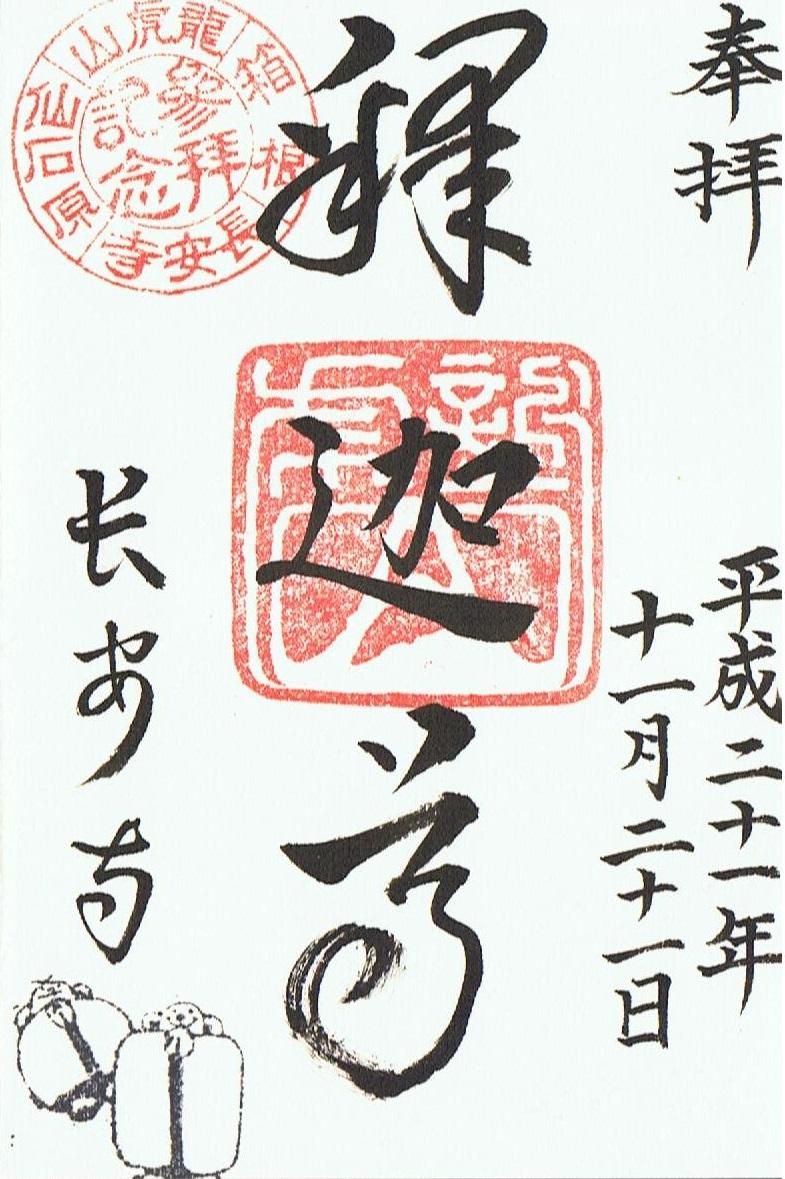 奉拝
平成二十一年
十一月二十一日
釋迦尊
長安寺
龍虎山
箱根
長安寺
仙石原
參拜
記念